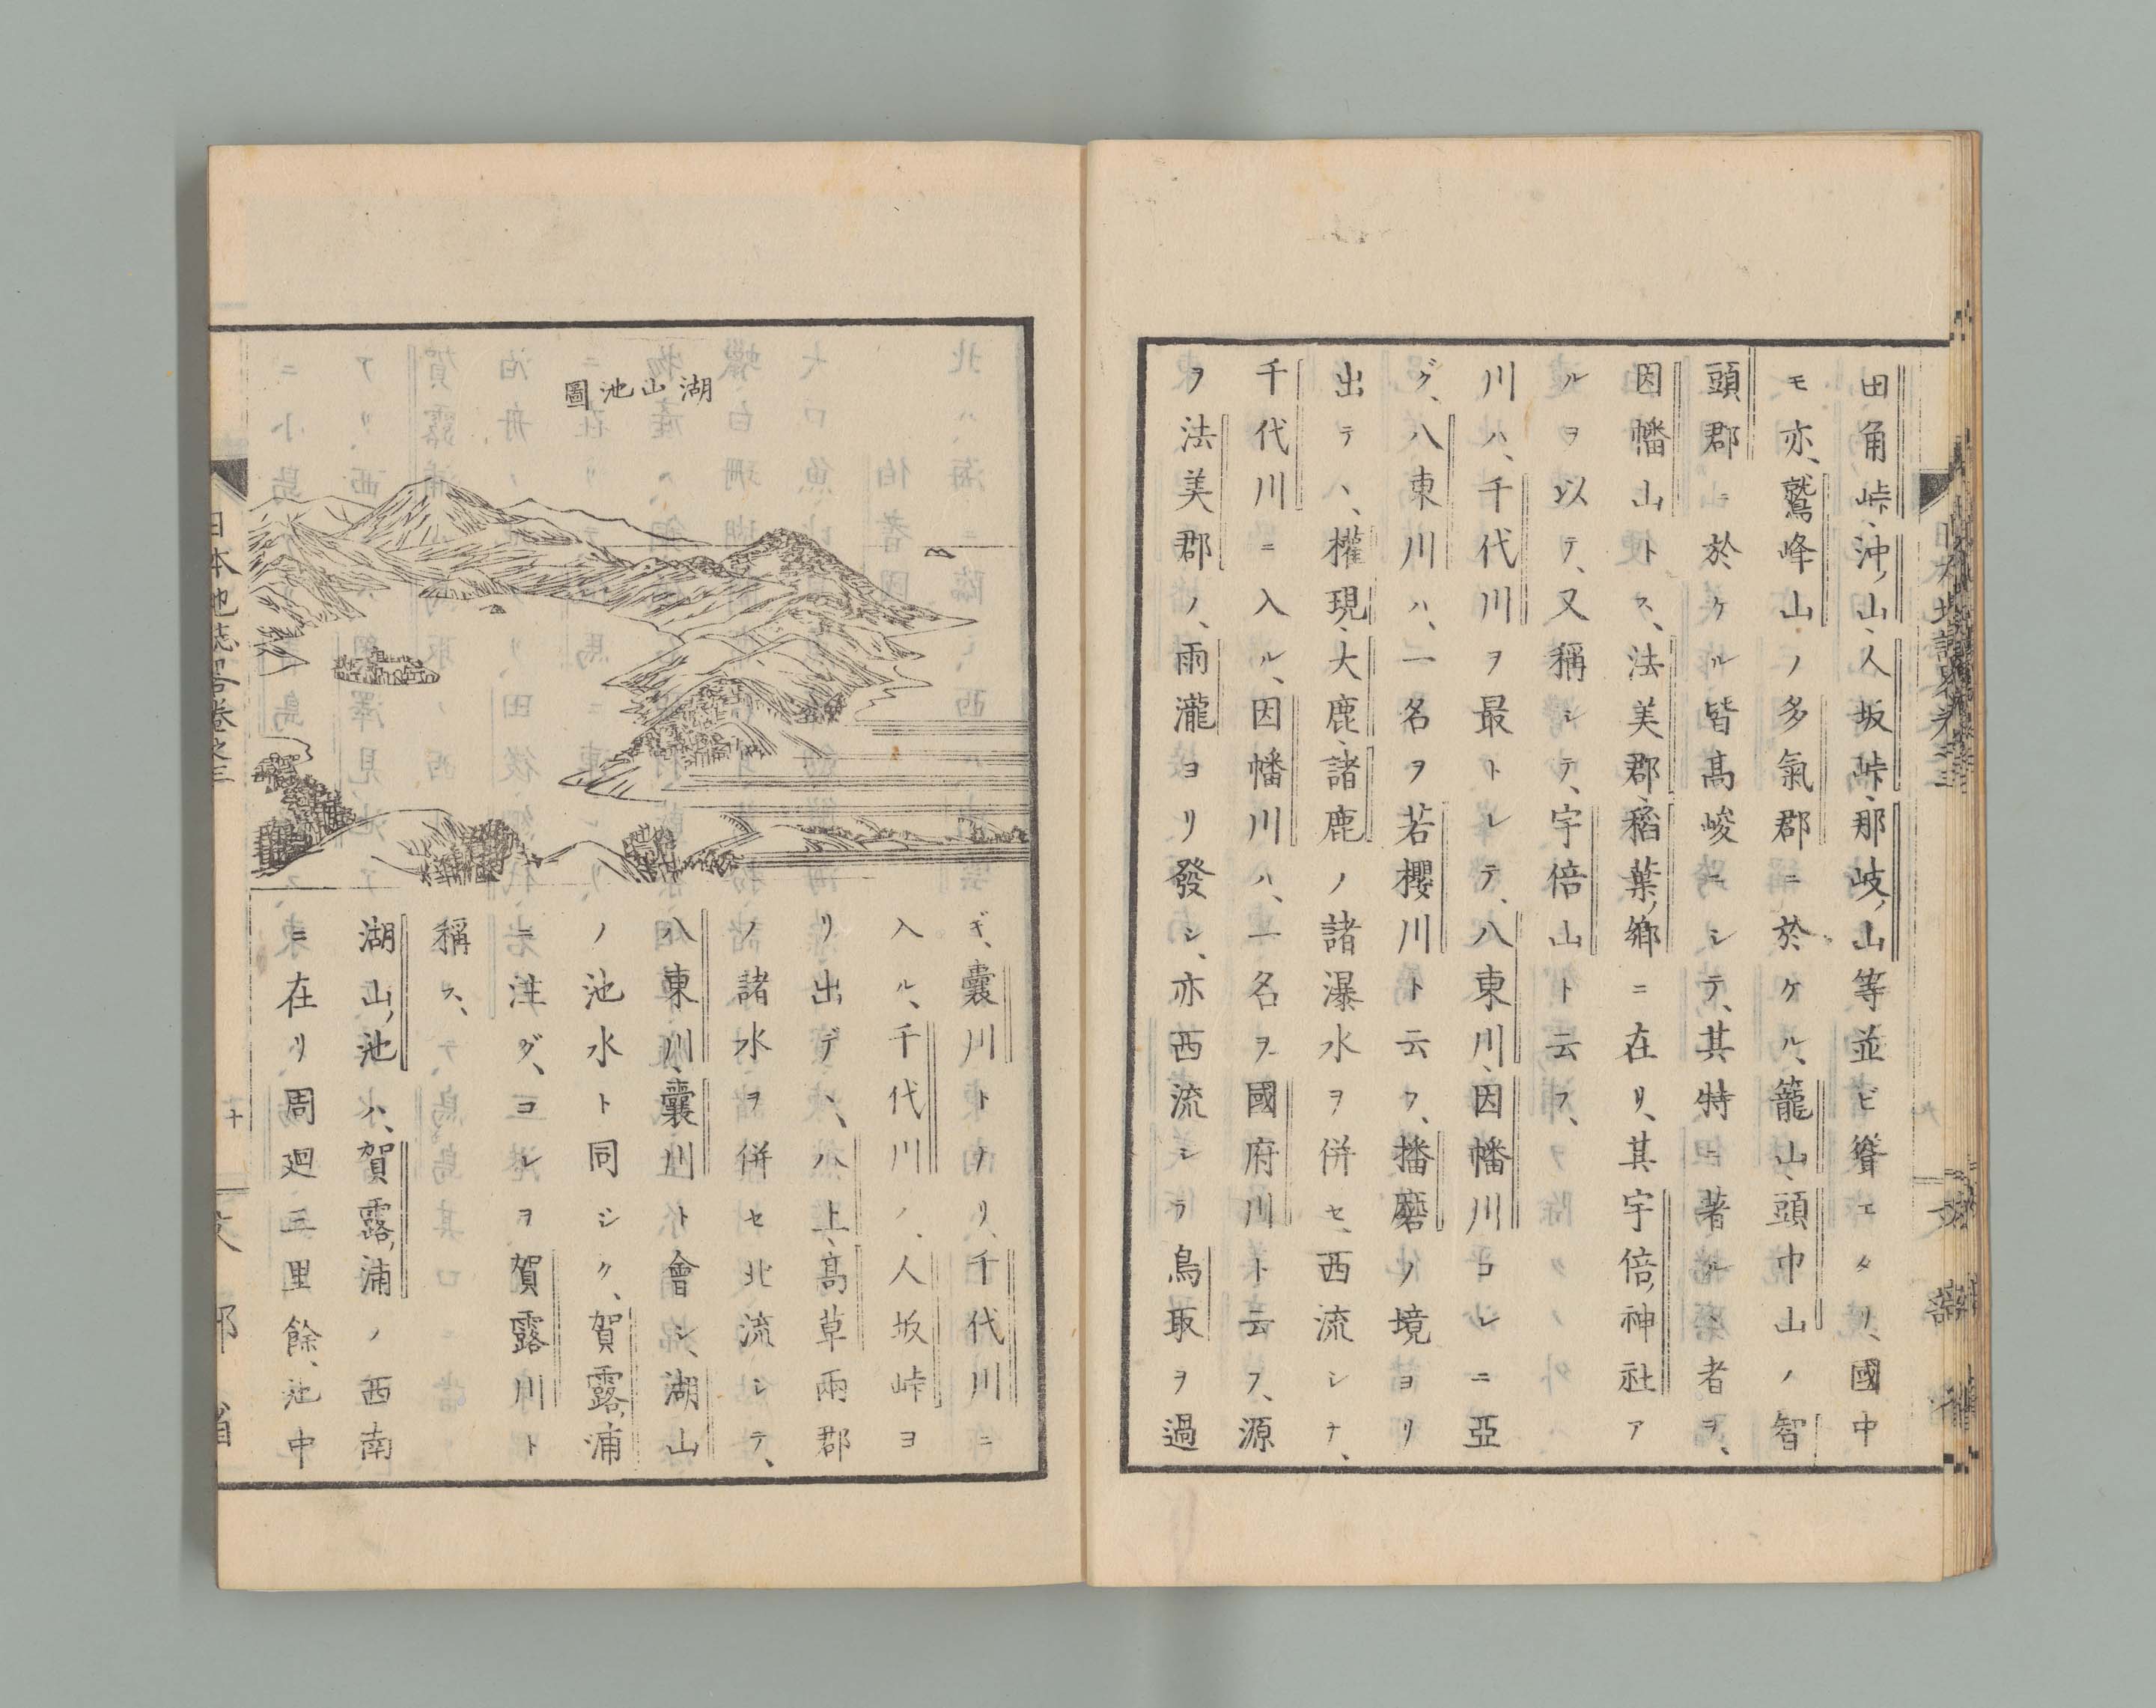 田角峠、沖ノ山、人坂峠、那岐ノ山等並ビ聳エタリ、國中
モ亦、鷲峰山ノ多氣郡ニ於ケル、籠山、頭巾山ノ智
頭郡ニ於ケル皆髙峻ニシテ、其特ニ著ルヽ者ヲ、
因幡山トス、法美郡、稻葉ノ鄉ニ在リ、其宇倍ノ神社ア
ルヲ以テ、又稱シテ、宇倍山ト云フ、
川ハ、千代川ヲ最トレテ、八東川、因幡川コレニ亞
グ、八東川ハ、一名ヲ若櫻川ト云フ、播磨ノ境ヨリ
出テヽ、權現、大鹿、諸鹿ノ諸瀑水ヲ併セ、西流シナ、
千代川ニ入ル、因幡川ハ、一名ヲ國府川ト云フ、源
ヲ法美郡ノ、雨瀧ヨリ發シ、亦西流シラ鳥取ヲ過
湖山池圖
ギ、囊川トナリ、千代川ニ
入ル、千代川ノ、人坂峠ヨ
リ出デヽ、八上、髙草兩郡
ノ諸水ヲ併セ北流シテ、
八東川、囊川ト會シ、湖山
ノ池水ト同シク、賀露ノ浦
ニ注グ、コレヲ賀露川ト
稱ス、
湖山ノ池ハ、賀露ノ浦ノ西南
ニ在リ周廻三里餘、池中
日本地誌畧卷之三
十
文部省